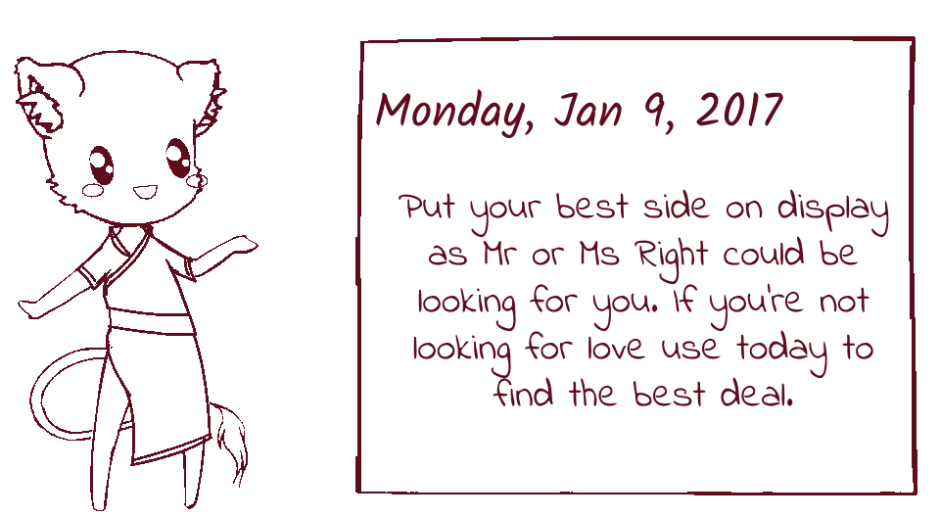 Monday, Jan 9, 2017
Put your best side on display
as Mr or Ms Right could be
looking for you. If you're not
looking for love use today to
find the best deal.